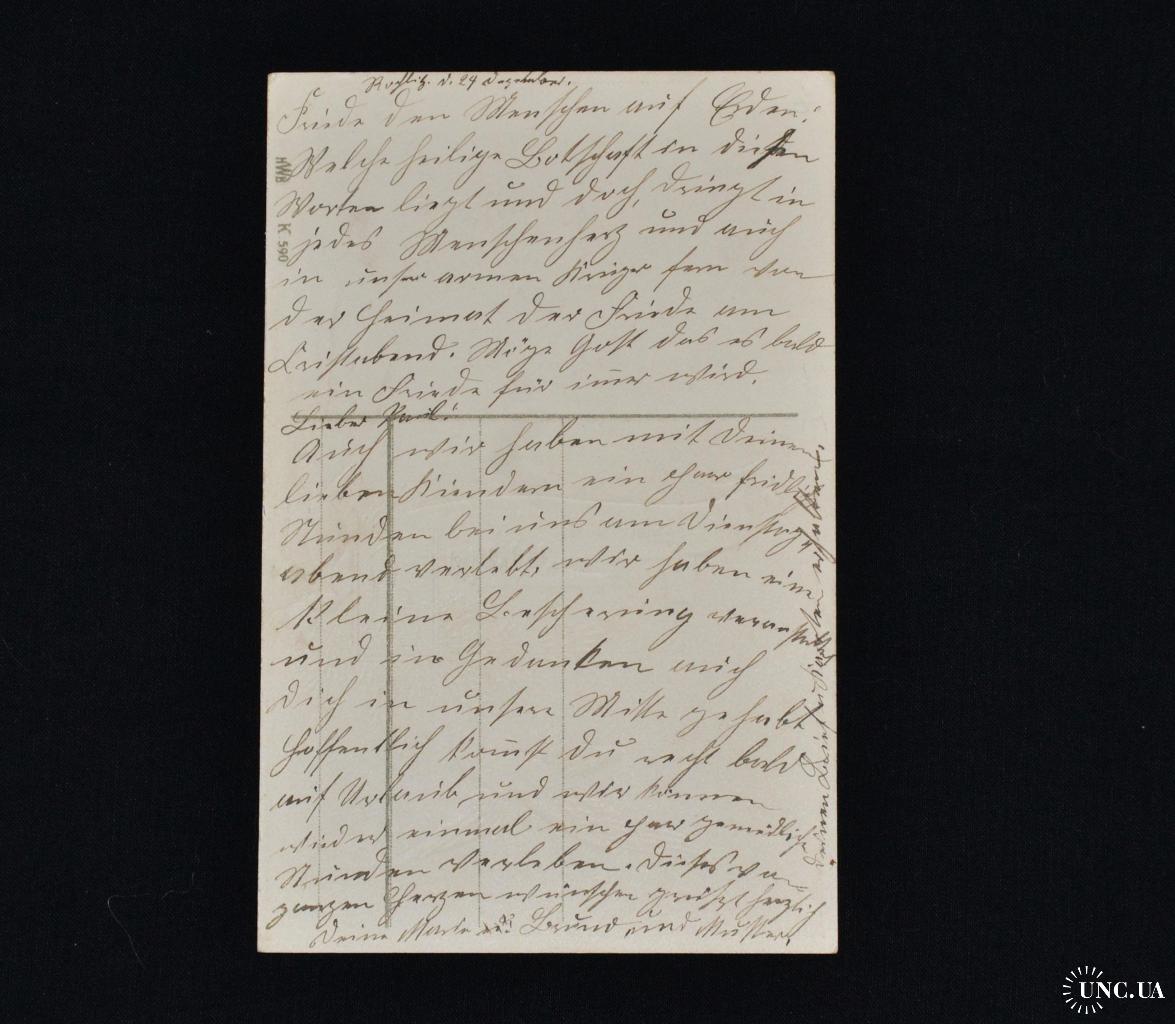 Rochlitz. d. 24 Dezember.
Friede den Menschen auf Erden!
Welche heilige Botschaft in diesen
Worten liegt und doch, dringt in
jedes Menschenherz und auch
in unser armen Krieger fern von
der Heimat der Friede am
Cristabend. Möge Gott das es bald
ein Friede für im̅er wird.
Lieber Paul!
Auch wir haben mit Deinen
lieben Kiendern ein paar fridliche
Stunden bei uns am Dienstag
abend verlebt. wir haben eine
kleine Bescherung veranstaltet
und in Gedanken auch
Dich in unsere Mitte gehabt
Hoffentlich kom̅st Du recht bald
auf Urlaub und wir können
wieder einmal ein paar gemüdliche
Stunden verleben. Dieses von
ganzen Herzen wünschen grüßt herzlich
Deine Marie Bruno und Mutter.
Deinen Brief erhalten.
HWB K 590
UNC.UA